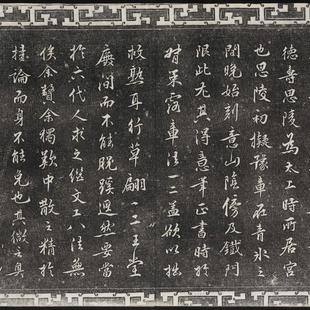 德壽思陵為太上時所居宮
也思陵初擬豫章在青氷之
間晚始刻意山陰傍及鐵門
限此尤其得意筆正書時於
策寓章法一二蓋欲以拙
救熟耳行草翩翩二王堂
廡間而不能脫蹊逕然要當
於六代人求之繼文工八法無
俟余贅余獨歎中散之精於
持論而身不能免也其微之